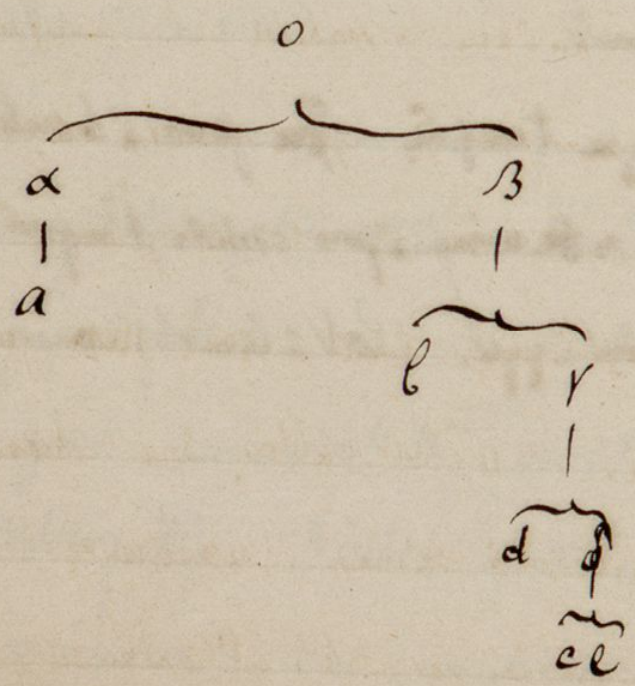 O
α β
a
b γ
d δ
c e